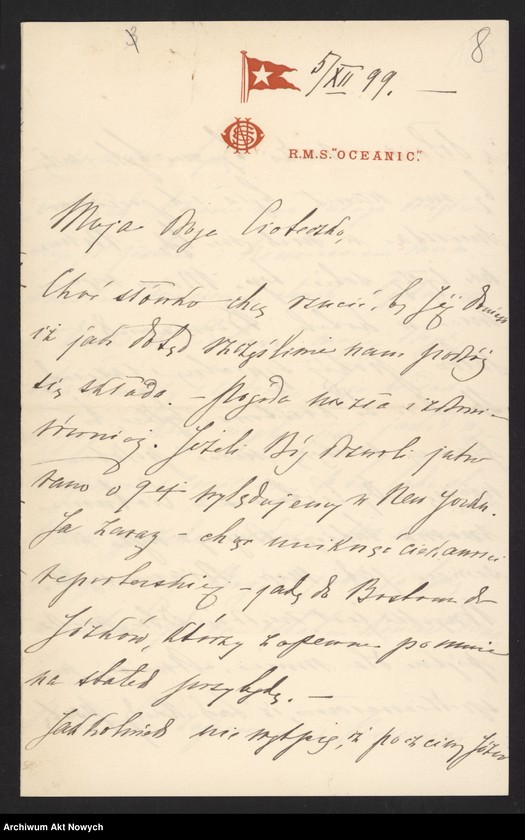 8
5/XII 99. —
R.M.S. "OCEANIC."
Moja Droga Cioteczko,
Choć słówko chcę rzucić, by Jej donieść
iż jak dotąd szczęśliwie nam podróż
się składa. — Pogoda niezła i zdrowie
również. Jeżeli Bóg dozwoli jutro
rano o 9ej wylądujemy w New Yorku.
Ja zaraz – chcąc uniknąć ciekawości
reporterskiej – jadę do Bostonu do
Józków, którzy zapewne po mnie
na statek przybędą. —
Jakkolwiek nie wątpię, iż poczciwy Józio
Archiwum Akt Nowych